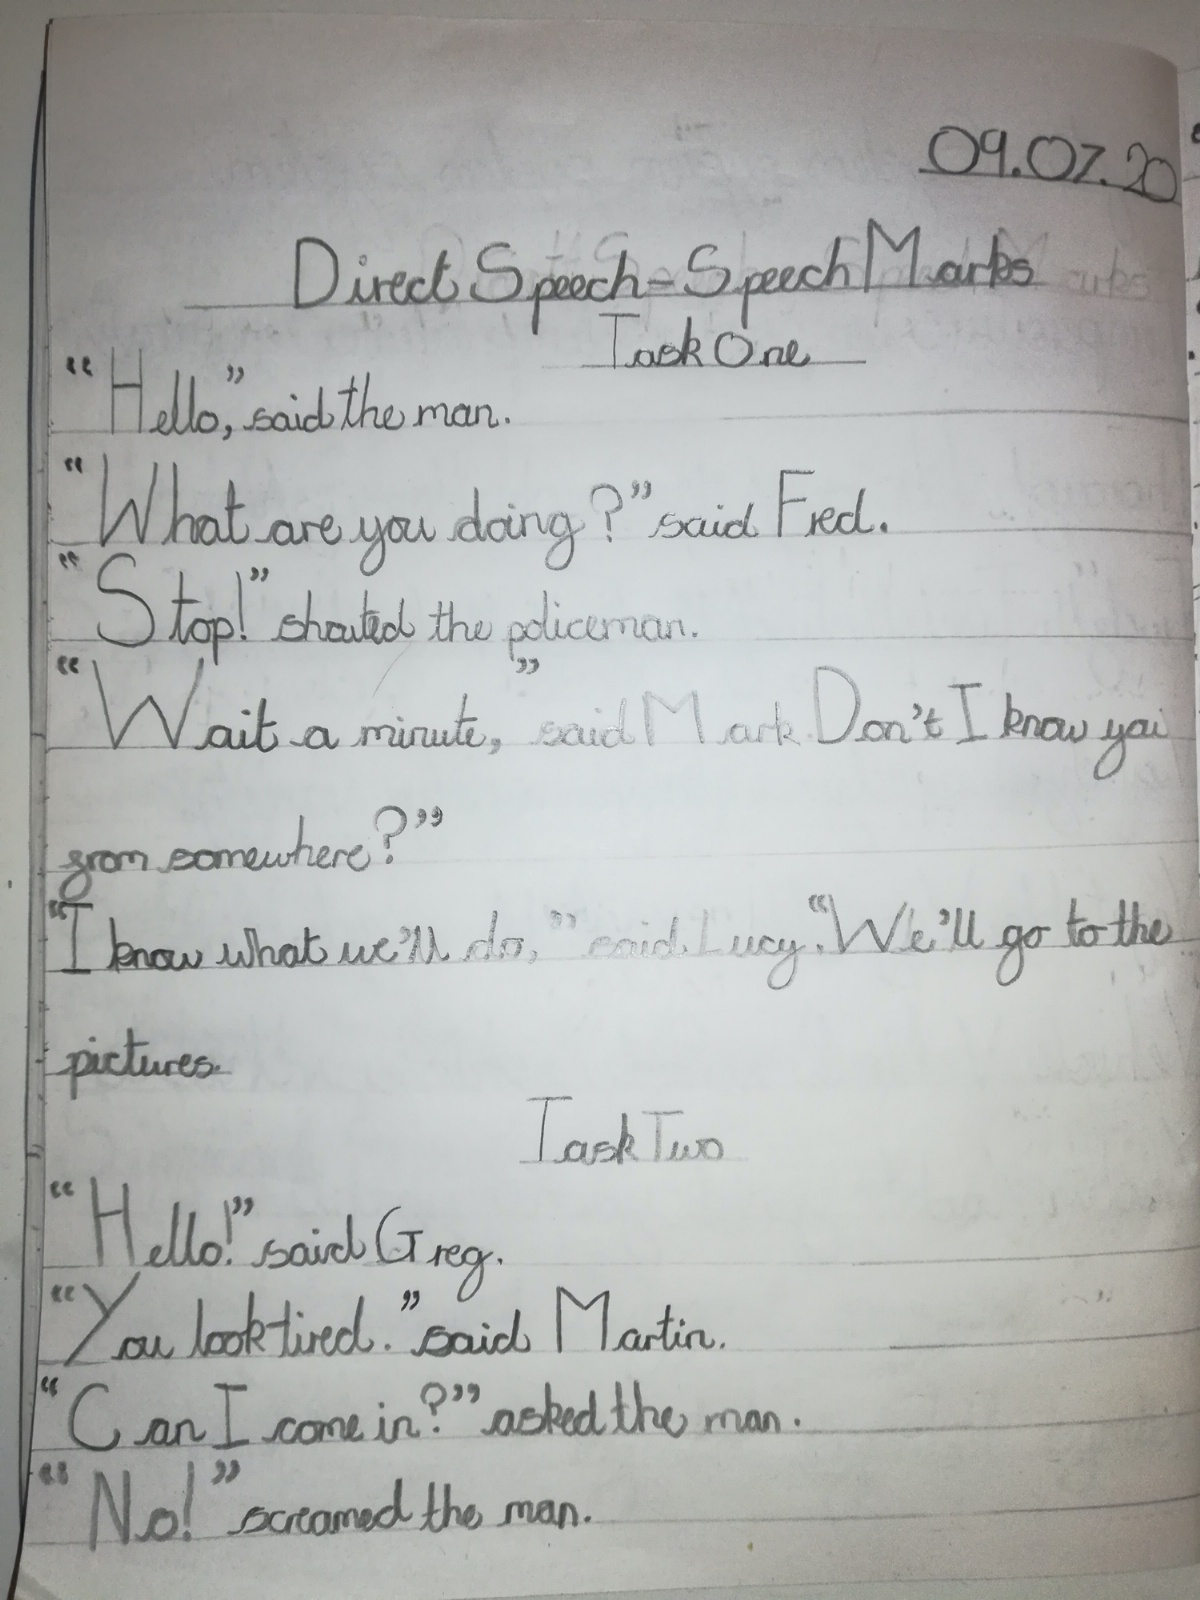 09.07.20
Direct Speech-Speech Marks
Task One
“Hello,” said the man.
“What are you doing?” said Fred.
“Stop!” shouted the policeman.
“Wait a minute,” said Mark. Don't I know you
from somewhere?”
“I know what we'll do,” said Lucy. “We'll go to the
pictures.
Task Two
“Hello!” said Greg.
“You look tired.” said Martin.
“Can I come in?” asked the man.
“No!” screamed the man.